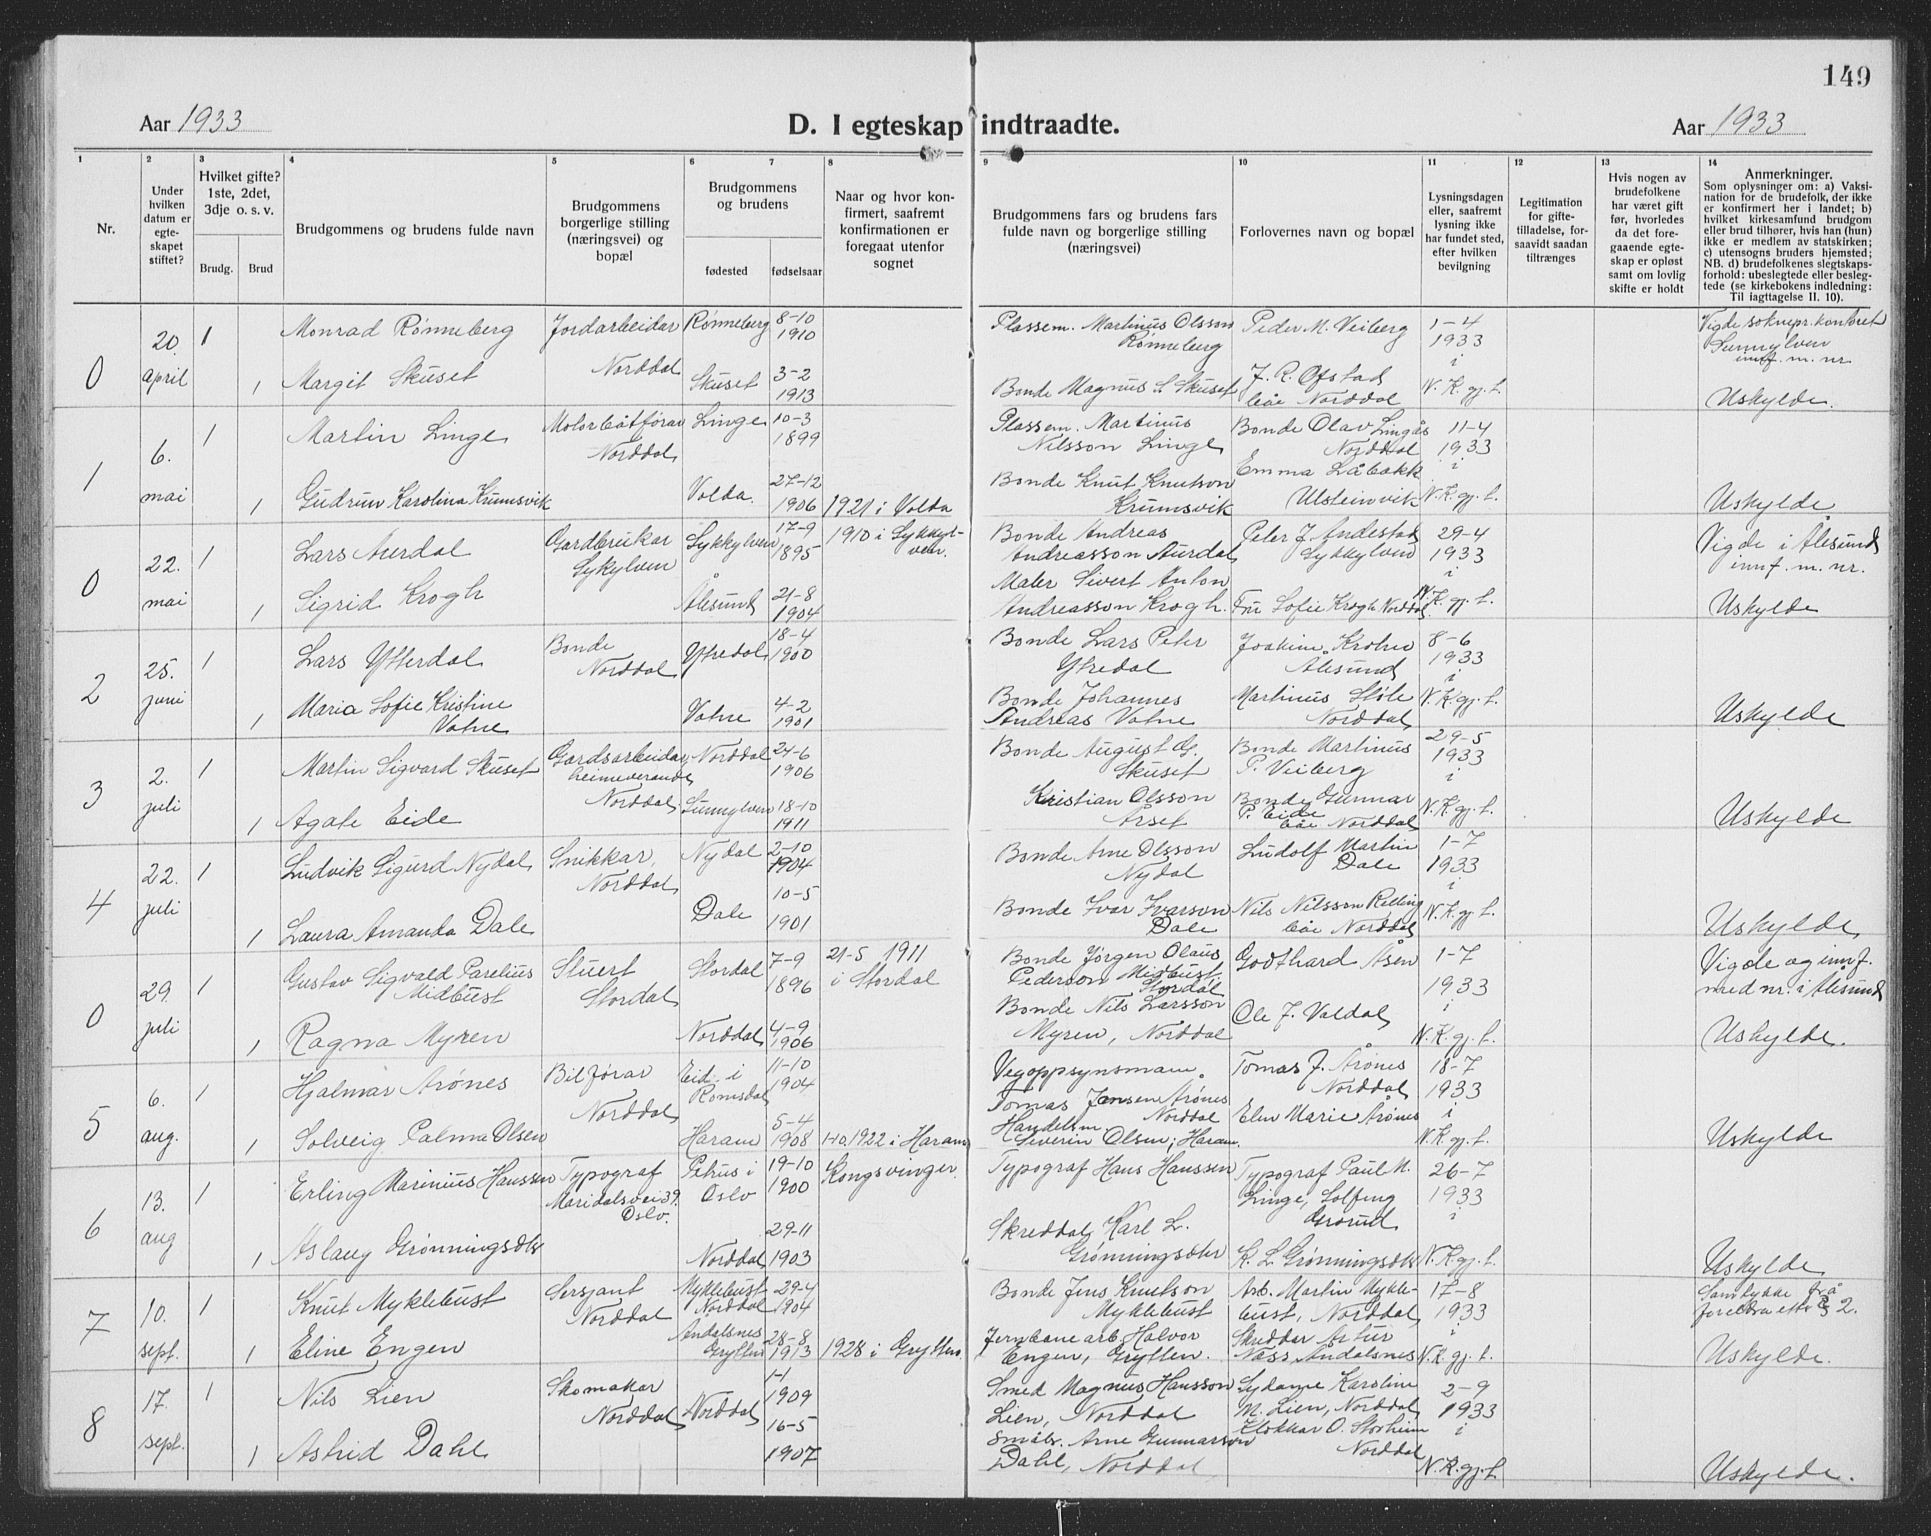 149
Aar 1933
D. I egteskap indtraadte.
Aar 1933
1
2
3
4
5
6
7
8
9
10
11
12
13
14
Nr.
Under hvilken datum er egte-skapet stiftet?
Hvilket gifte? 1ste, 2det, 3dje o. s. v.
Brudg.
Brud
Brudgommens og brudens fulde navn
Brudgommens borgerlige stilling (næringsvei) og bopæl
Brudgommens og brudens
fødested
fødselsaar
Naar og hvor kon-firmert, saafremt konfirmationen er foregaat utenfor sognet
Brudgommens fars og brudens fars fulde navn og borgerlige stilling (næringsvei)
Forlovernes navn og bopæl
Lysningsdagen eller, saafremt lysning ikke har fundet sted, efter hvilken bevilgning
Legitimation for gifte-tilladelse, for-saavidt saadan tiltrænges
Hvis nogen av brudefolkene har været gift før, hvorledes da det fore-gaaende egte-skap er opløst samt om lovlig skifte er holdt
Anmerkninger.
Som oplysninger om: a) Vaksi-nation for de brudefolk, der ikke er konfirmert her i landet; b) hvilket kirkesamfund brudgom eller brud tilhører, hvis han (hun) ikke er medlem av statskirken; c) utensogns bruders hjemsted; NB. d) brudefolkenes slegtskaps-forhold: ubeslegtede eller besleg-tede (se kirkebokens indledning: Til iagttagelse II. 10).
0
20. april
1
Monrad Rønneberg
Jordarbeidar Norddal
Rønneberg
8-10 1910
Plassem. Martinus Olsson Rønneberg
Peder M. Veiberg
1-4 1933 i N. K. gj. l.
Vigde soknepr. kontoret Sunnylven innf. m. nr
1
Margit Skuset
Skuset
3-2 1913
Bonde Magnus S. Skuset
J. R. Ofstad båe Norddal
Uskylde.
1
6. mai
1
Martin Linge
Motorbåtførar Norddal
Linge
10-3 1899
Plassem. Martinus Nilsson Linge
Bonde Olav Lingås Norddal
11-4 1933 i N. K. gj. l.
1
Gudrun Karolina Krumsvik
Volda
27-12 1906
1921 i Volda
Bonde Knut Knutson Krumsvik
Emma Låbakk Ulsteinvik
Uskylde
0
22. mai
1
Lars Aurdal
Gardbrukar Sykylven
Sykkylven
17-9 1895
1910 i Sykkyl-ven.
Bonde Andreas Andreasson Aurdal
Peter J. Andestad Sykkylven
29-4 1933 i N. K. gj. l.
Vigde i Ålesund innf. m. nr.
1
Sigrid Krogh
Ålesund
21-8 1904
Maler Sivert Anton Andreasson Krogh.
Fru Sofie Krogh Norddal
Uskylde
2
25. juni
1
Lars Ytterdal
Bonde Norddal
Ytredal
18-4 1900
Bonde Lars Peter Ytredal
Joakim Krohn Ålesund
8-6 1933 i N. K. gj. l.
1
Maria Sofie Kristine Vatne
Vatne
4-2 1901
Bonde Johannes Andreas Vatne
Martinus Støle Norddal
Uskylde
3
2. juli
1
Martin Sigvard Skuset
Gardsarbeidar heimeverande Norddal
Norddal
24-6 1906
Bonde August G. Skuset
Bonde Martinus P. Veiberg
29-5 1933 i N. K. gj. l.
1
Agate Eide
Sunnylven
18-10 1911
Kristian Olsson Årset
Bonde Gunnar P. Eide båe Norddal
Uskylde
4
22. juli
1
Ludvik Sigurd Nydal
Snikkar, Norddal
Nydal
2-10 1904
Bonde Arne Olsson Nydal
Ludolf Martin Dale
1-7 1933 i N. K. gj. l.
1
Laura Amanda Dale
Dale
10-5 1901
Bonde Ivar Ivarson Dale
Nils Nilsson Relling båe Norddal
Uskylde
0
29. juli
1
Gustav Sigvald Parelius Midbust
Stuert Stordal
Stordal
7-9 1896
21-5 1911 i Stordal
Bonde Jørgen Olaus Pederson Midbust, Stordal
Godthard Åsen
1-7 1933 i N. K. gj. l.
Vigde og innf. med nr. i Ålesund
1
Ragna Myren
Norddal
4-9 1906
Bonde Nils Larsson Myren, Norddal
Ole J. Valdal
Uskylde.
5
6. aug.
1
Hjalmar Årønes
Bilførar Norddal
Eid i Romsdal
11-10 1904
Vegoppsynsmann Tomas Jansen Årønes Norddal
Tomas J. Årønes Norddal
18-7 1933 i N. K. gj. l.
1
Solveig Palma Olsen
Haram
5-4 1908
1922 i Haram
Handelsm. Severin Olsen, Haram.
Elen Marie Årønes
Uskylde
6
13. aug
1
Erling Marinius Hanssen
Typograf Maridalsvei 39. Oslo.
Petrus i Oslo
19-10 1900
Kongsvinger.
Typograf Hans Hanssen
Typograf Paul M. Linge, Solfeng Grorud
26-7 1933 i N. K. gj. l.
1
Aslaug Grønningsæter
Norddal
29-11 1903
Skreddar Karl L. Grønningsæter
K. L. Grønningsæter
Uskylde
7
10. sept.
1
Knut Myklebust
Sersjant Norddal
Myklebust Norddal
29-4 1904
Bonde Jens Knutson Myklebust
Arb. Martin Mykle-bust, Norddal
17-8 1933 i N. K. gj. l.
Samtykke frå foreldra etter § 2.
1
Eline Engen
Andalsnes Grytten
28-8 1913
1928 i Grytten
Jernbanearb. Halvor Engen, Grytten.
Skreddar Artur Næss Åndalsnes
Uskylde.
8
17. sept.
1
Nils Lien
Skomakar Norddal
Norddal
1-1 1909
Smed Magnus Hansson Lien, Norddal
Lydianne Karoline M. Lien, Norddal
2-9 1933 i N. K. gj. l.
1
Astrid Dahl
16-5 1907
Småbr. Arne Gunnarson Dahl, Norddal
Klokkar O. Storheim Norddal
Uskylde.